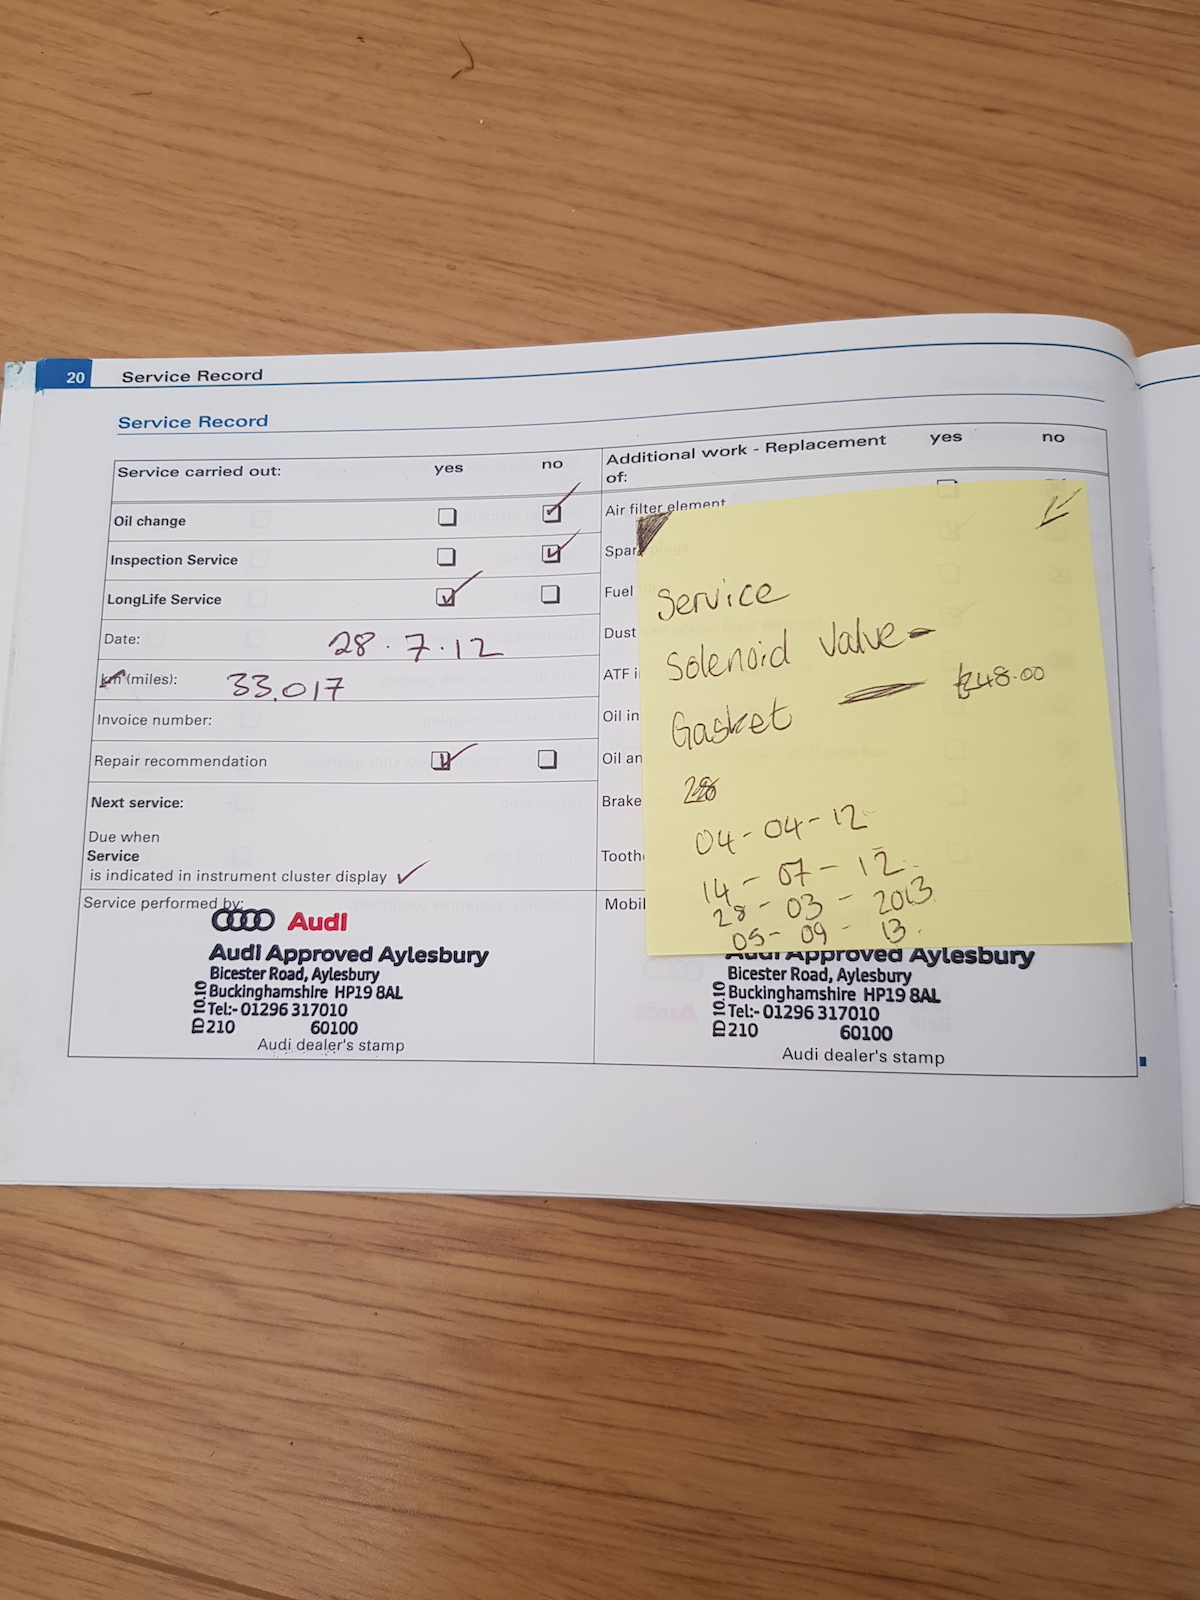 20 Service Record
Service Record
Service carried out: yes no
Oil change
Inspection Service
LongLife Service
Date: 28.7.12
km (miles): 33,017
Invoice number:
Repair recommendation
Next service:
Due when
Service
is indicated in instrument cluster display
Service performed by:
Audi
Audi Approved Aylesbury
Bicester Road, Aylesbury
Buckinghamshire HP19 8AL
Tel:- 01296 317010
210 60100
ID 10.10
Audi dealer's stamp
Additional work - Replacement yes no
of:
Air filter element
Spar
Fuel
Dust
ATF i
Oil in
Oil an
Brake
Tooth
Mobil
Service
Solenoid Valve-
Gasket £248.00
04-04-12
14-07-12
28-03-2013
05-09-13.
Audi Approved Aylesbury
Bicester Road, Aylesbury
Buckinghamshire HP19 8AL
Tel:- 01296 317010
210 60100
ID 10.10
Audi dealer's stamp